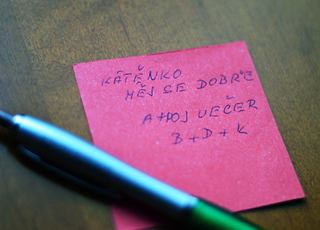 KÁTĚNKO
MĚJ SE DOBŘE
AHOJ VEČER
B+D+K